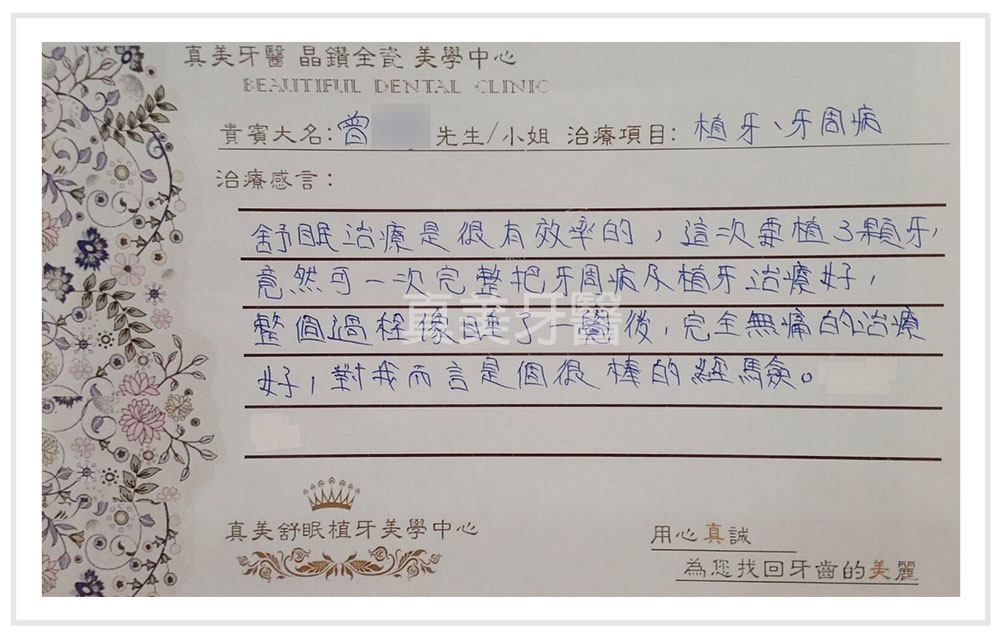 真美牙醫 晶鑽全瓷 美學中心
BEAUTIFUL DENTAL CLINIC
貴賓大名：曾 先生/小姐 治療項目：植牙、牙周病
治療感言：
舒眠治療是很有效率的，這次要植3顆牙，
竟然可一次完整把牙周病及植牙治療好，
真美牙醫
整個過程像睡了一覺後，完全無痛的治療
好，對我而言是個很棒的經驗。
真美舒眠植牙美學中心
用心真誠
為您找回牙齒的美麗